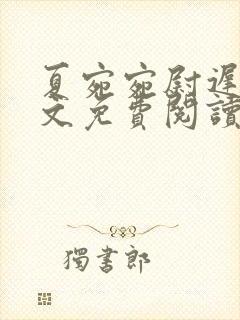 夏宛宛尉遲
文免費閱讀
獨書郎